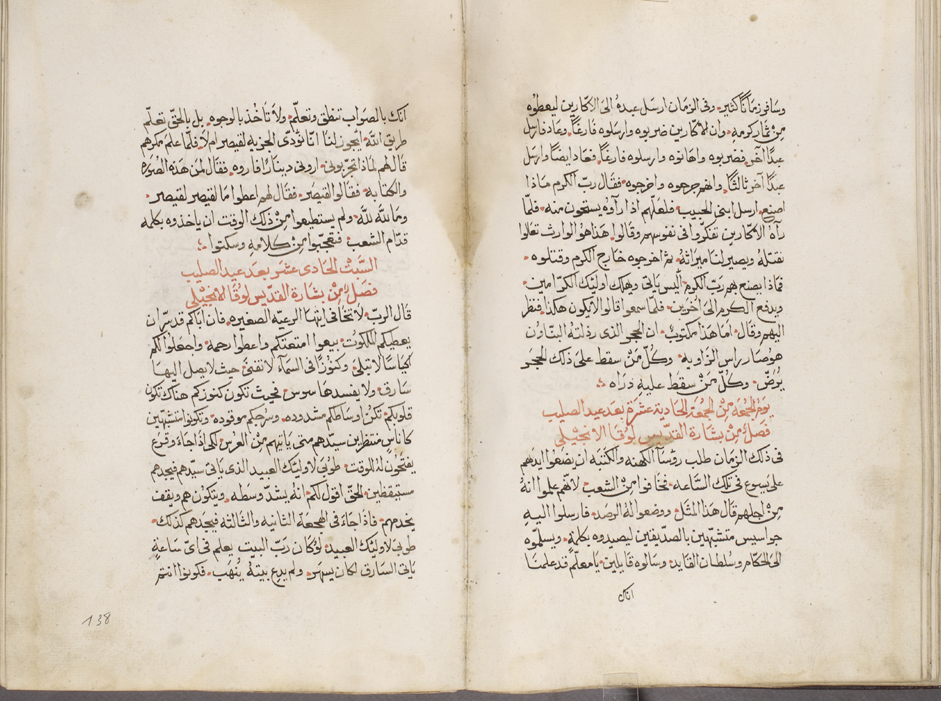 وسافر زمانًا كثير. وفى الزمان ارسل عبده الى الاكارين ليعطوه
من ثمار كرمه. وان الاكارين ضربوه وارسلوه فارغًا. وعاد فارسل
عبدًا آخر. فضربوه واهانوه وارسلوه فارغًا. فعاد ايضًا وارسل
عبدًا آخر ثالثًا. وانهم جرحوه واخرجوه. فقال رب الكرم ماذا
اصنع ارسل ابنى الحبيب. فلعلهم اذا راوه يستحون منه. فلما
رآه الاكارين تفكروا فى نفوسهم وقالوا هذا هو الوارث تعالوا
نقتله ويصير لنا ميراثه. ثم اخرجوه خارج الكرم وقتلوه.
فماذا يصنع بهم رب الكرم أليس ياتى ويهلك اوليك الكرامين.
ويدفع الكرم الى اخرين. فلما سمعوا قالوا لا يكون هكذا. فنظر
اليهم وقال. اما هذا مكتوب. ان الحجر الذى رذلته البناون
هو صار راس الزاويه. وكل من سقط على ذلك الحجر
يرض. وكل من سقط عليه ذراه
يوم الجمعه من الجمعة الحادية عشرة بعد عيد الصليب
فصل من بشارة القديس لوقا الانجيلى
فى ذلك الزمان طلب روسآ الكهنه والكتبه ان يضعوا ايديهم
على يسوع فى تلك الساعه. فخافوا من الشعب. لانهم علموا انه
من اجلهم قال هذا المثل. ووضعوا له الرصد. فارسلوا اليه
جواسيس متشبهين بالصديقين ليصيدوه بكلمة. ويسلموه
الى الحكام وسلطان القايد. وسالوه قايلين. يا معلم قد علمنا
انك
انك بالصواب تنطق وتعلم. ولا تاخذ بالوجوه. بل بالحق تعلم
طريق الله. ايجوز لنا اننا نؤدى الجزية لقيصر ام لا. فلما علم مكرهم
قال لهم لماذا تجربونى. ارونى دينارًا فاروه. فقال لمن هذه الصوره
والكتابه. فقالوا لقيصر. فقال لهم اعطوا ما لقيصر لقيصر.
وما لله لله. ولم يستطيعوا من ذلك الوقت ان ياخذوه بكلمه
قدام الشعب. فتعجبوا من كلامه وسكتوا
السبت الحادى عشر بعد عيد الصليب
فصل من بشارة القديس لوقا الانجيلى
قال الرب. لا تخافى ايتها الرعيه الصغيره. فان اباكم قد سر ان
يعطيكم الملكوت. بيعوا امتعتكم واعطوا رحمة. واجعلوا لكم
اكياسًا لا تبلى. وكنوزًا فى السمآء لا تفنى حيث لا يصل اليها
سارق. ولا يفسدها سوس. فحيث تكون كنوزكم هناك تكون
قلوبكم. تكن اوساطكم مشدوده. وسرجكم موقوده. وتكونوا متشبهين
كاناس منتظرين سيدهم متى ياتيهم من العرس. لكى اذا جاء وقرع
يفتحون له للوقت. طوبى لاوليك العبيد الذى ياتى سيدهم فيجدهم
مستيقظين. الحق اقول لكم. انه يشد وسطه. ويتكون هم ويقف
يخدمهم. فاذا جاء فى الهجعة الثانيه والثالثه فيجدهم كذلك.
طوبى لاوليك العبيد. لو كان رب البيت يعلم فى اى ساعة
ياتى السارق لكان يسهر. ولم يدع بيته ينهب. فكونوا انتم
138